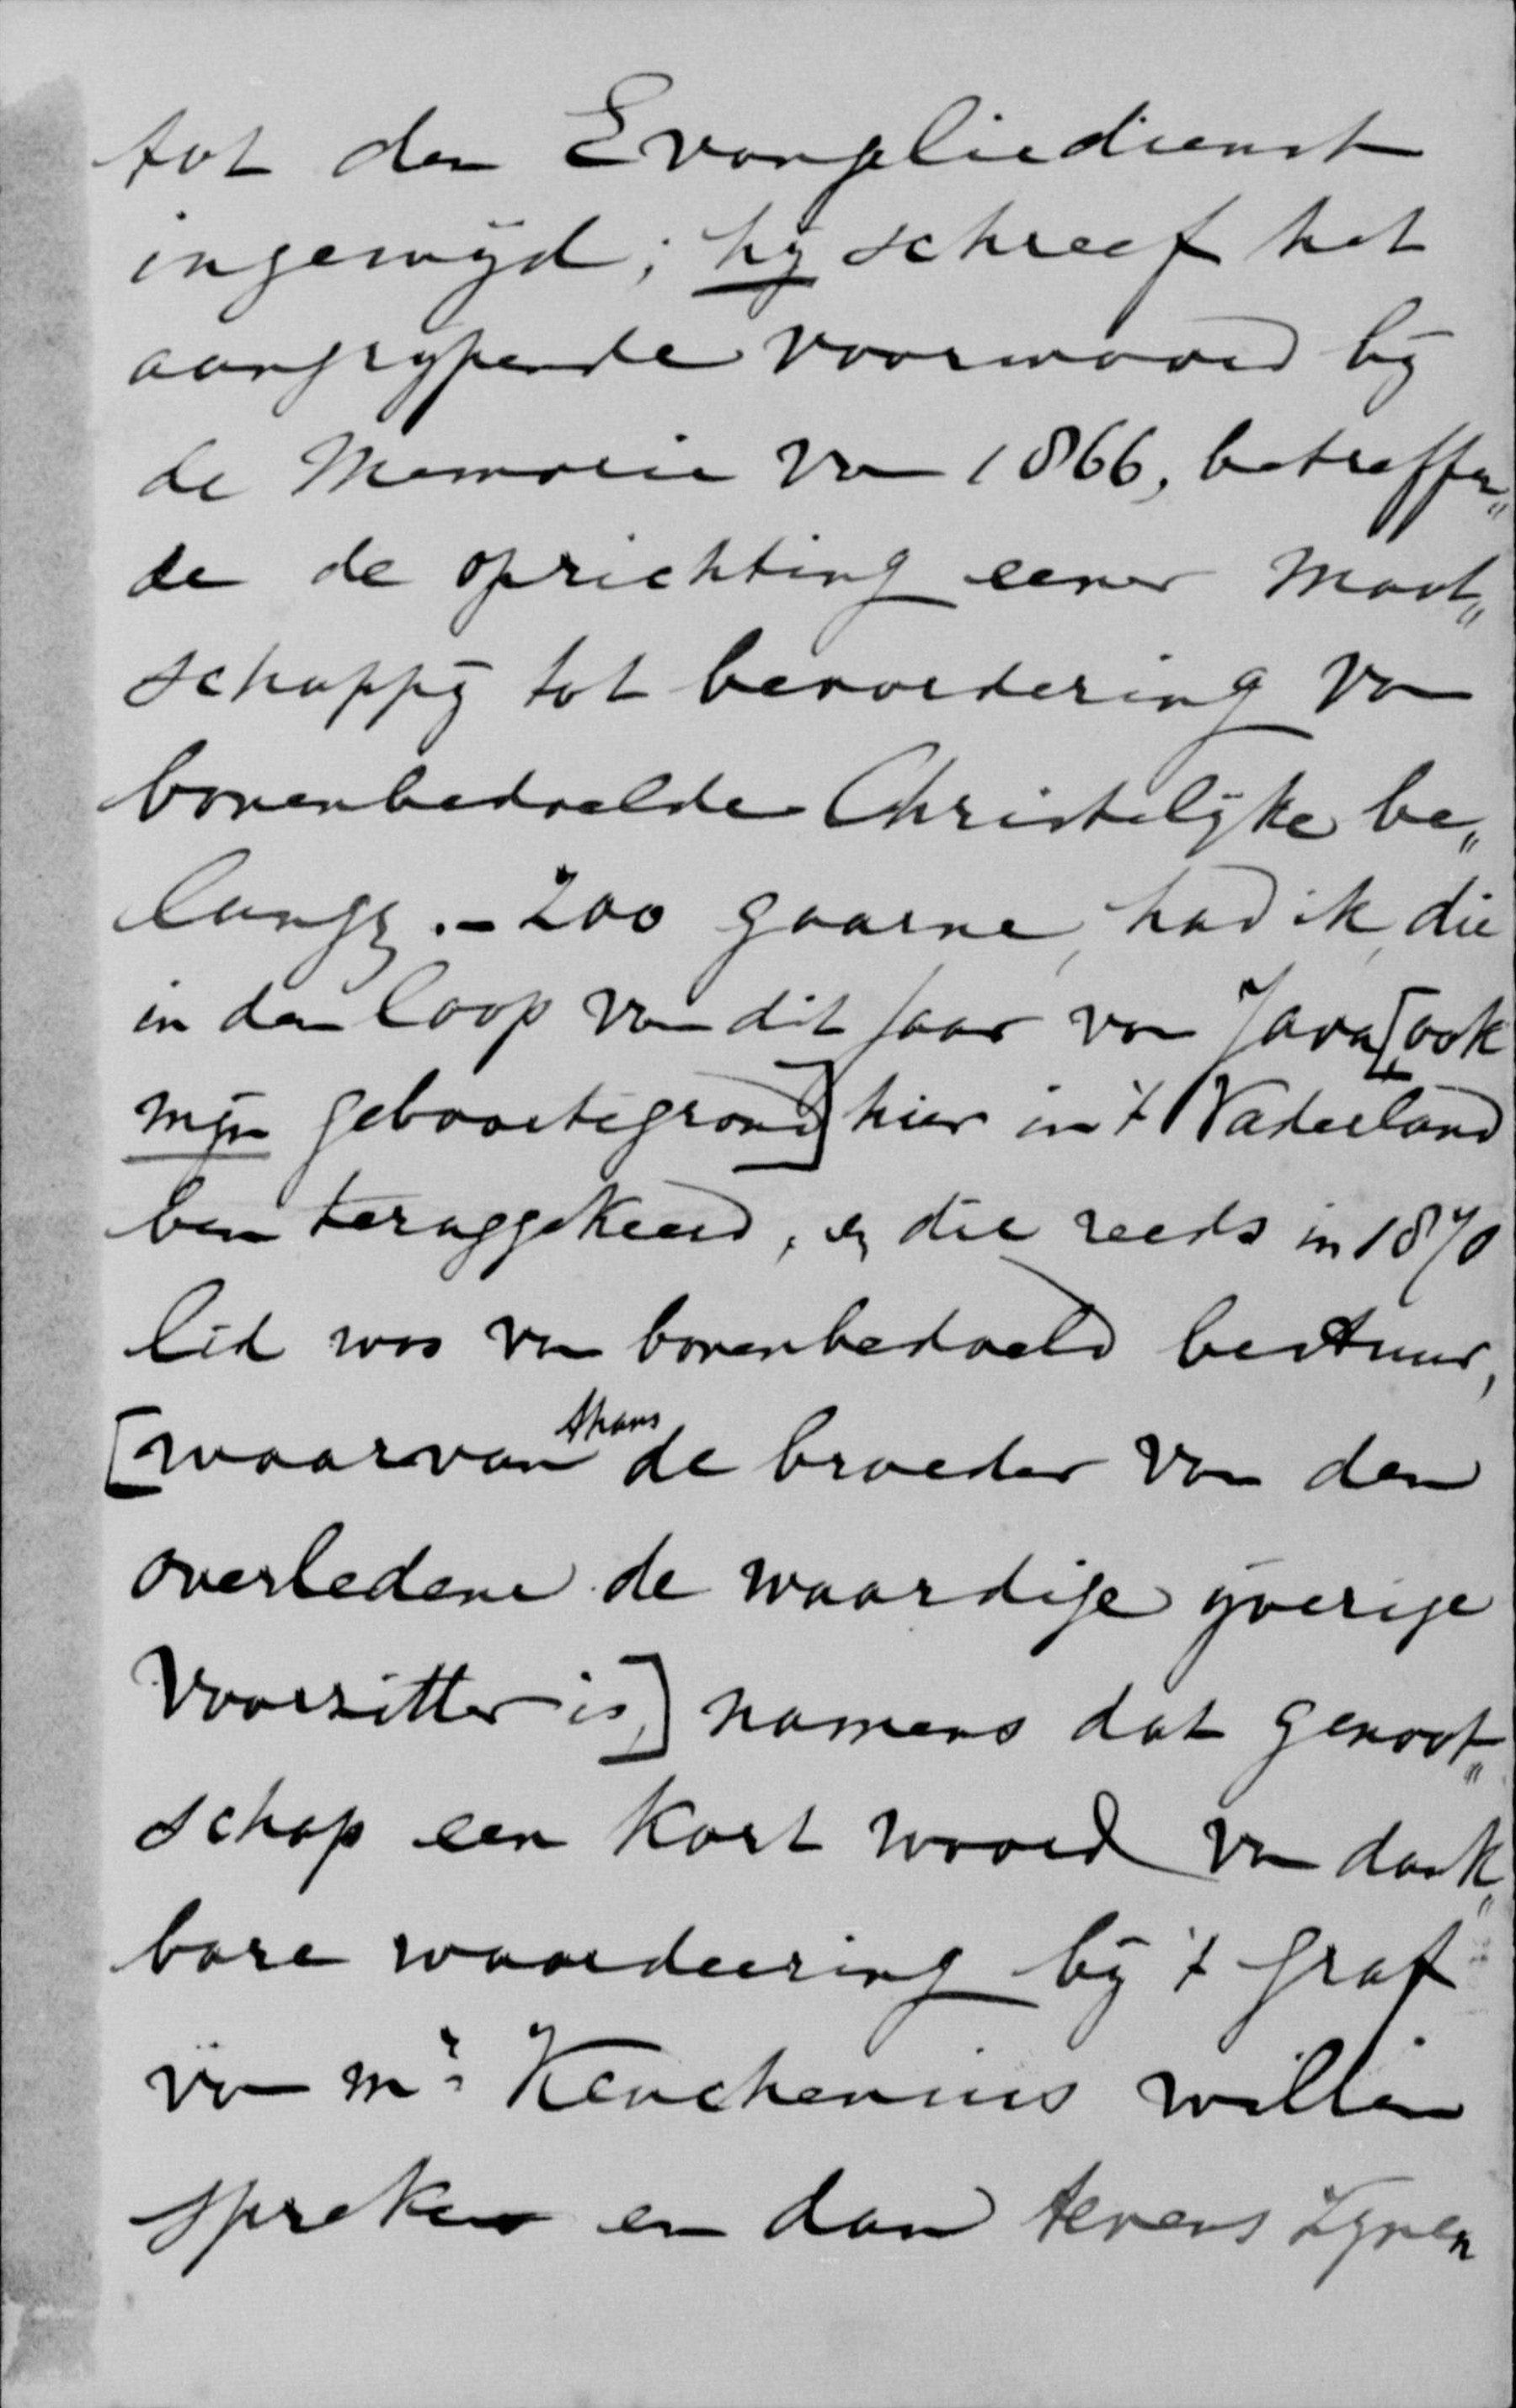 tot den Evangeliedienst
ingewijd; hij schreef het
aangrijpende voorwoord bij
de Memorie van 1866, betreffen„
de de oprichting eener Maat„
schappij tot bevordering van
bovenbedoelde Christelijke be„
langen. – Zoo gaarne, had ik, die
in den loop van dit jaar van Java [ook
mijn geboortegrond] hier in 't Vaderland
ben teruggekeerd, en die reeds in 1870
lid was van bovenbedoeld bestuur,
[waarvan thans de broeder van den
overledene de waardige ijverige
Voorzitter is,] namens dat genoot„
schap een kort woord van dank„
bare waardeering bij 't graf
van Mr. Keuchenius willen
spreken en dan tevens zijnen